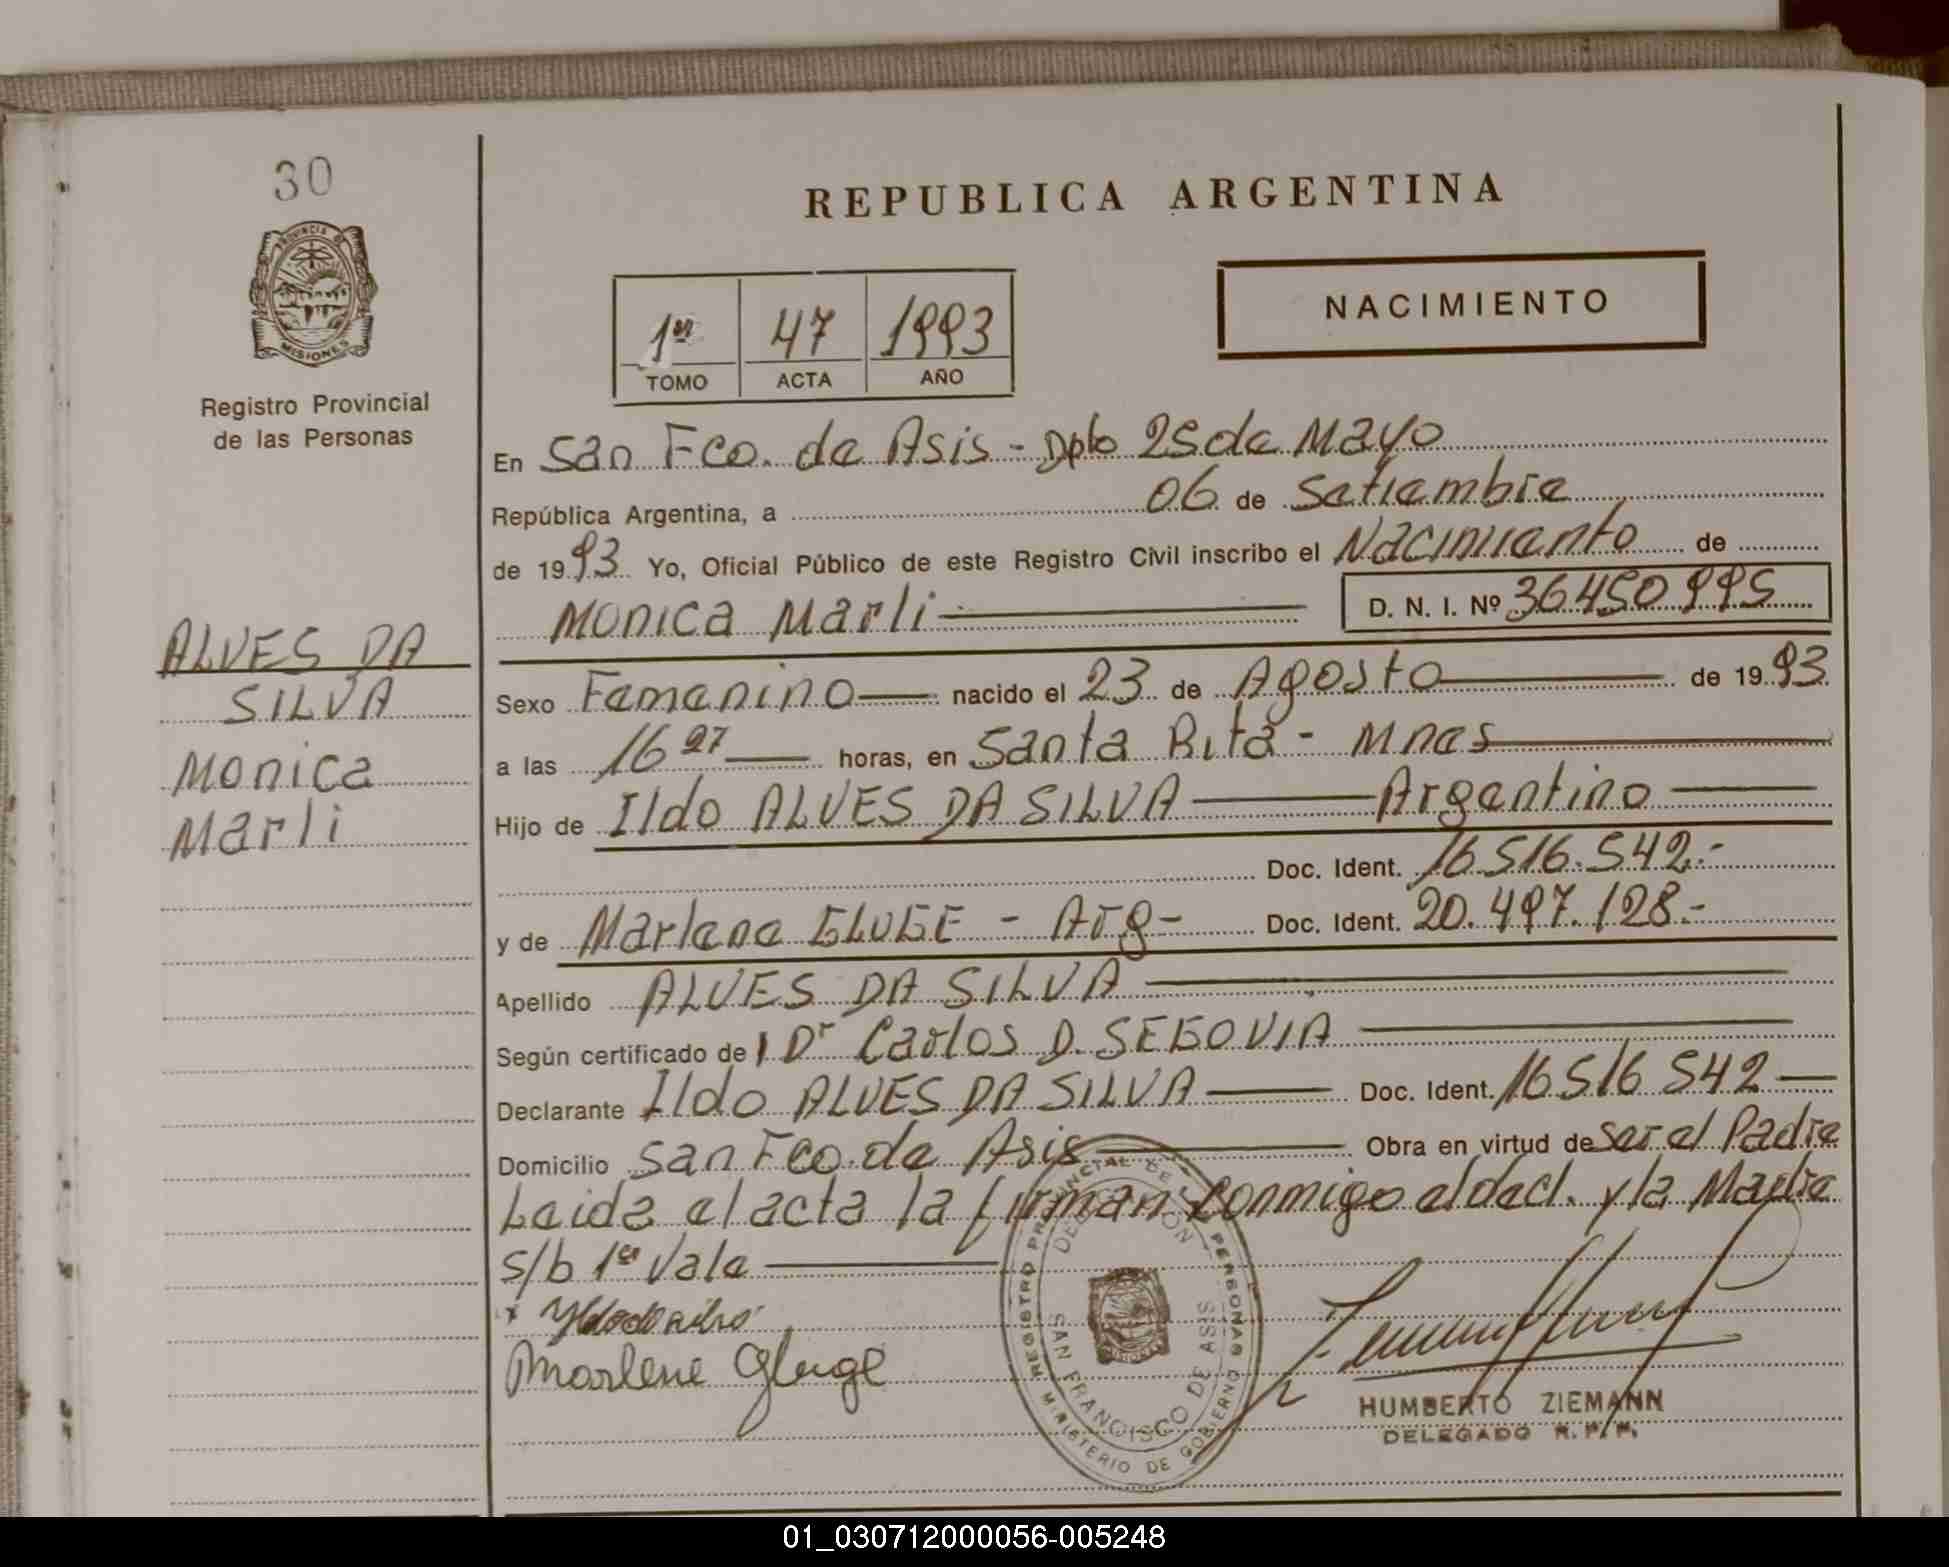 30
PROVINCIA DE
MISIONES
Registro Provincial
de las Personas
ALVES DA
SILVA
Monica
Marli
REPUBLICA ARGENTINA
1er 47 1993
TOMO ACTA AÑO
NACIMIENTO
En San Fco. de Asis - Dpto 25 de Mayo
República Argentina, a 06 de Setiembre
de 1993 Yo, Oficial Público de este Registro Civil inscribo el Nacimiento de
Monica Marli D. N. I. Nº 36450995
Sexo Femenino nacido el 23 de Agosto de 1993
a las 16 27 horas, en Santa Rita - Mnes
Hijo de Ildo ALVES DA SILVA Argentino
Doc. Ident. 16516.542.-
y de Marlene GLUGE - Arg - Doc. Ident. 20.497.128.-
Apellido ALVES DA SILVA
Según certificado de l Dr Carlos D. SEGOVIA
Declarante Ildo ALVES DA SILVA Doc. Ident. 16516542
Domicilio San Fco. de Asis Obra en virtud de Ser el Padre
Leida el acta la firman conmigo el decl. y la Madre
s/b 1er Vale
Marlene Gluge
REGISTRO PROVINCIAL DE PERSONAS
DELEGACION
SAN FRANCISCO DE ASIS
MINISTERIO DE GOBIERNO
HUMBERTO ZIEMANN
DELEGADO R.P.P.
01_030712000056-005248